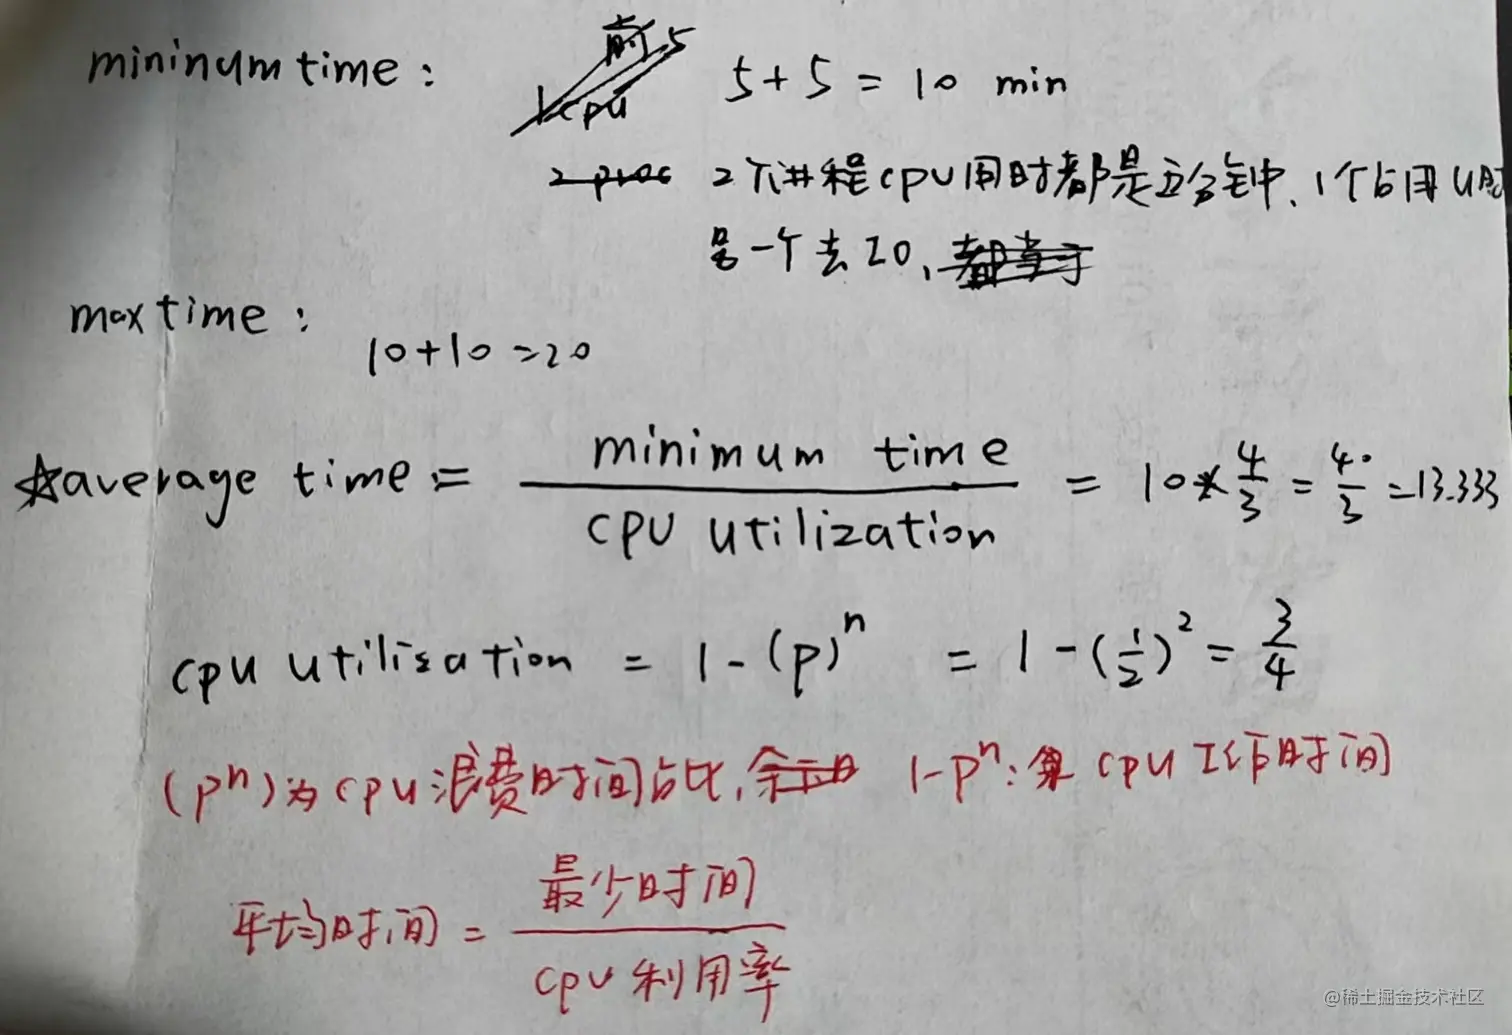 mininum time: 5+5=10 min
2个进程CPU用时都是五分钟、1个占用U时
另一个去IO、
max time:
10+10=20
☆average time:= minimum time / CPU utilization = 10*4/3 = 40/3 =13.333
cpu utilisation = 1-(p)^n = 1-(1/2)^2 = 3/4
(p^n)为cpu浪费时间占比, 1-p^n:算 cpu工作时间
平均时间 = 最少时间 / cpu利用率
@稀土掘金技术社区